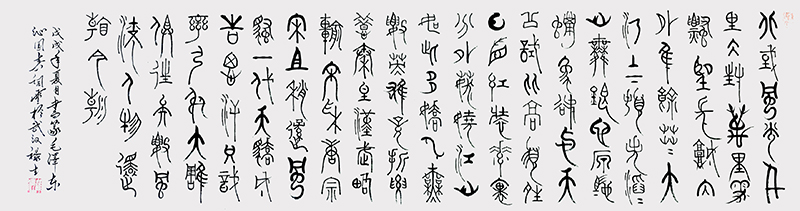 北或風光千
里冰封萬里雪
飄望長城內
外惟餘莽〻大
河上下頓失滔〻
山舞銀蛇原馳
蠟象欲與天
公試比高須晴
日看紅裝素裹
分外妖嬈江山
如此多嬌引無
數英雄競折腰
惜秦皇漢武略
輸文采唐宗
宋祖稍遜風
騷一代天驕成
吉思汗只識
彎弓射大雕
俱往矣數風
流人物還
看今朝
戊戌年夏月書篆毛澤東
沁園春詞雪於武漢